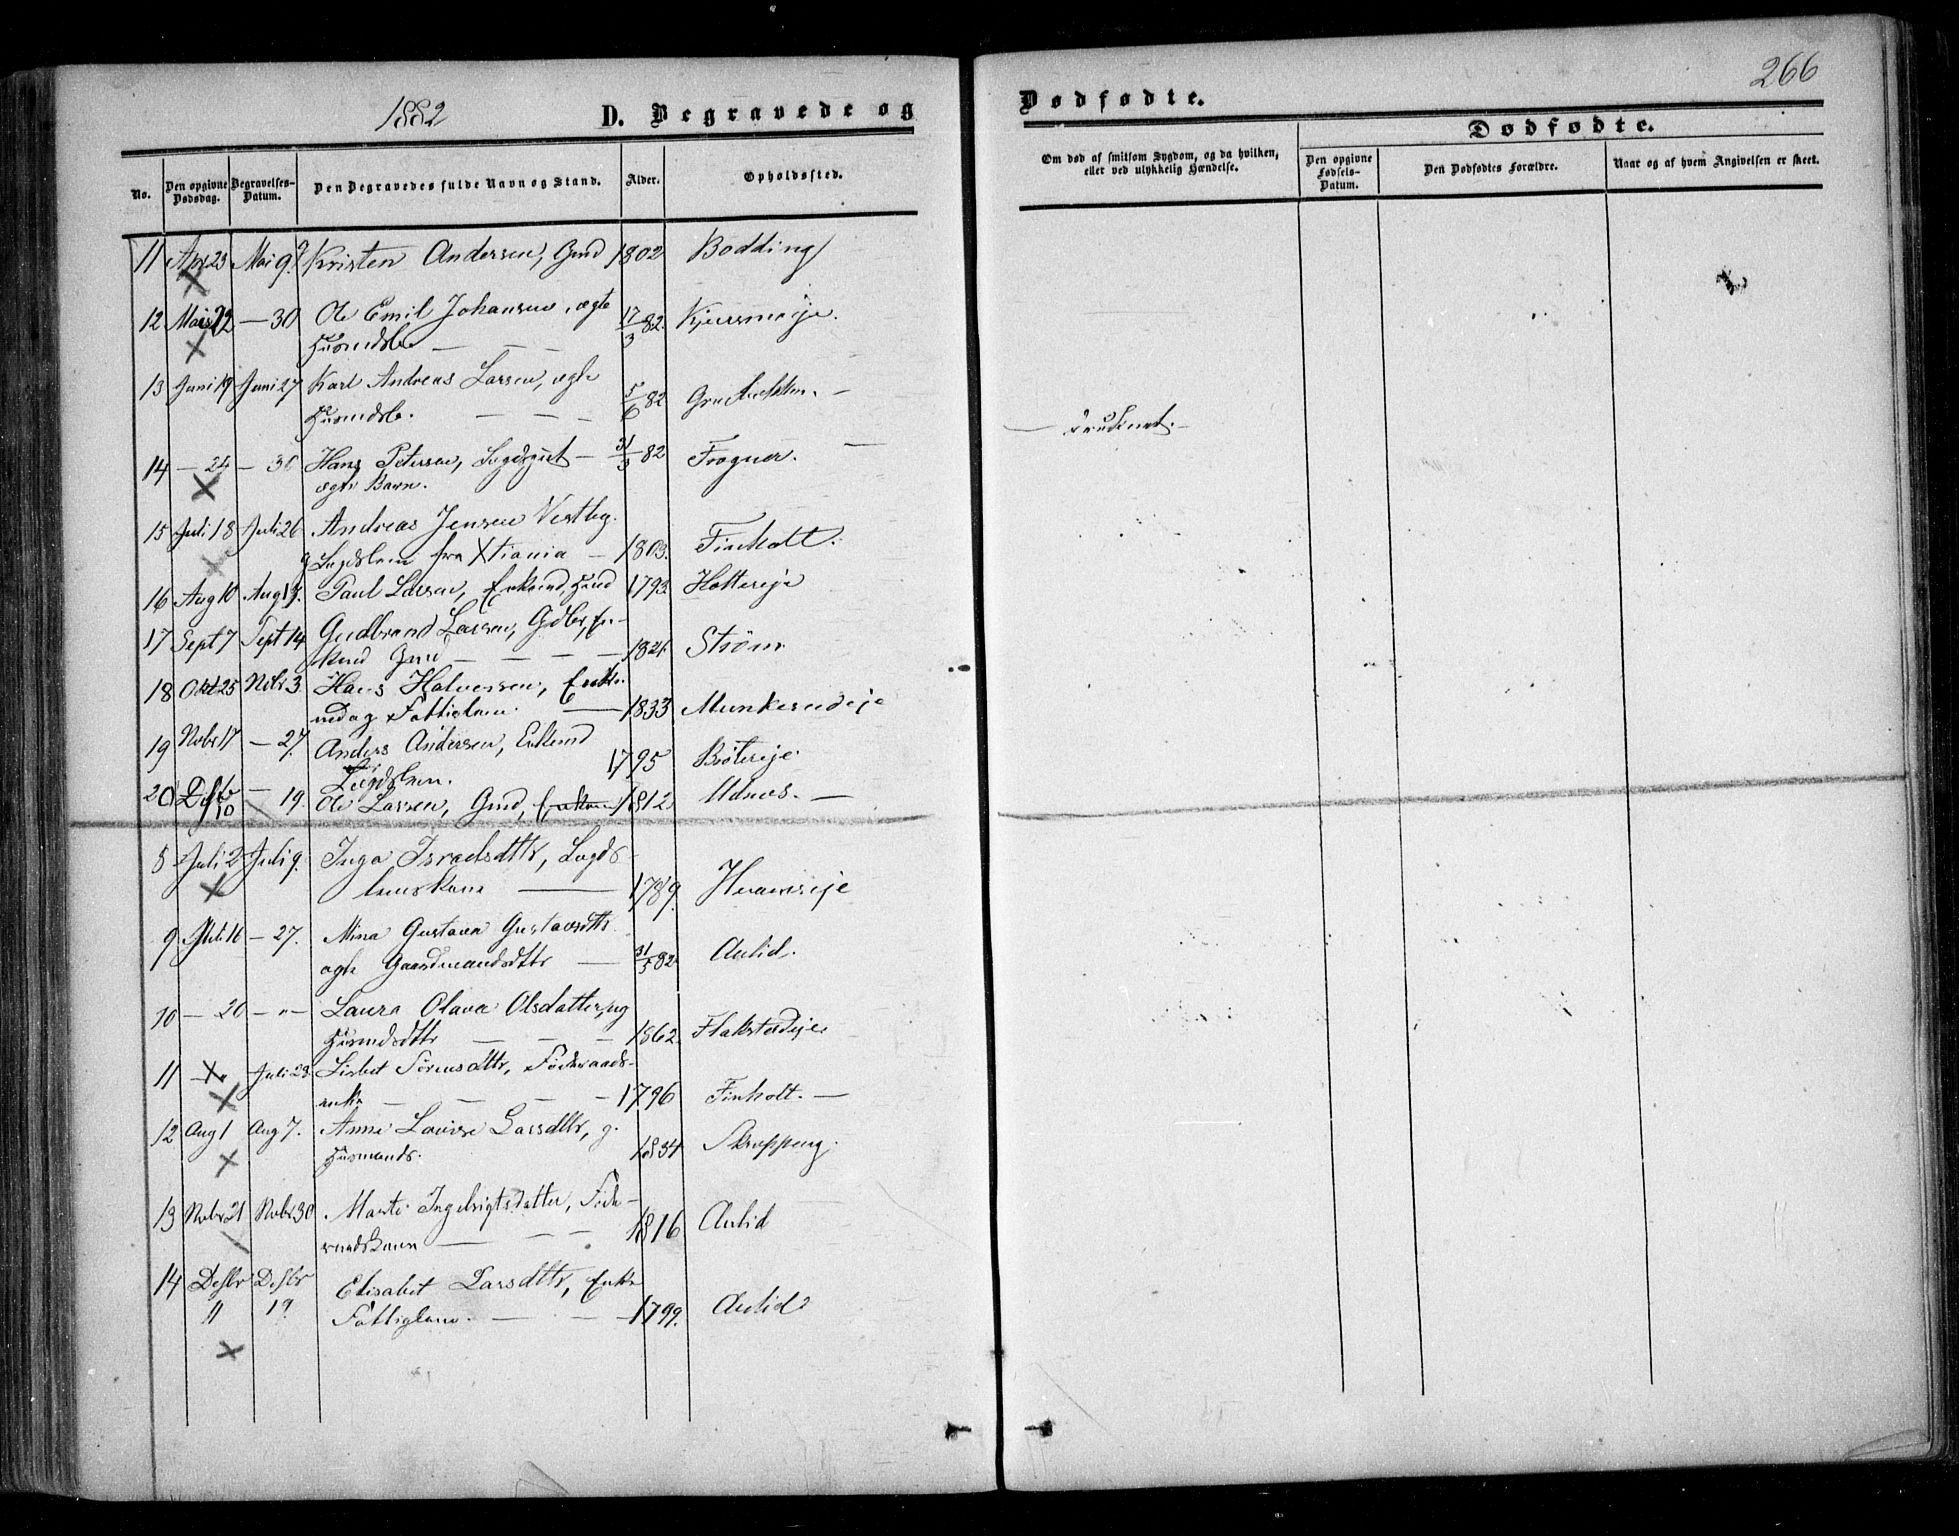 266
1882 D. Begravede og Dødfødte.
Dødfødte.
No. Den opgivne Dødsdag. Begravelses-Datum. Den Begravedes fulde Navn og Stand. Alder. Opholdssted.
Om død af smitsom Sygdom, og da hvilken, eller ved ulykkelig Hændelse. Den opgivne Fødsels-Datum. Den Dødfødtes Forældre. Naar og af hvem Angivelsen er skeet.
11 Apr 23 Mai 9 Kristen Andersen, Gmd 1802 Bødding
12 Mai 22 — 30 Ole Emil Johansen, ægte 17/3 82. Kjersmeje.
Husmdsb. — — —
13 Juni 19 Juni 27 Karl Andreas Larsen, ægte
Husmdsb. — — — 5/6 82
14 — 24 — 30 Hans Petersen, Legdsgut — 31/3 82 Frogner. —
ægte Barn.
15 Juli 18 Juli 26 Andreas Jensen Vestby.
g Legdslem fra Xtiania — 1803. Finholt.
16 Aug 10 Aug 13. Paul Larsen, Enkemd, Husmd 1793. Hottereje
17 Sept 7 Sept 14 Gudbrand Larsen, Gdbr, En-
kmd Gmd — — — — 182 Strøm
18 Okt 25 Nvbr 3 Hans Halvorsen, Enke-
md og Fattiglem. — 1833 Munkerudeje
19 Nvbr 17 — 27. Anders Andersen, Enkemd
Legdslem. 1795 Bøtereje
20 Desbr 10 — 19. Ole Larsen, Gmd, 1812 Udnæs. —
5 Juli 2 Juli 9. Inga Israelsdttr, Legds-
lemskone — 1789. Hvamseje
9 Juli 16 — 27. Mina Gustava Gustavsdttr
ægte Gaardmandsdttr — 31/5 82 Aulid.
10 — 20 — " — Laura Olava Olsdatter, ug
Husmdsdttr — — — 1862. Flakstadeje
11 Juli 28. Lisbet Sørensdttr, Føderaads-
enke — — — — 1796 Finholt. —
12 Aug 1 Aug 7. Anne Lovise Larsdttr, g.
Husmands. 1834 Skrøppeng.
13 Nvbr 21 Nvbr 30 Marte Ingebrigtsdatter, Føde-
raadskone — — — 1816 Aulid
14 Desbr 11 Desbr 19. Elisabet Larsdttr, Enke
Fattiglem. — — — 1799. Aulid